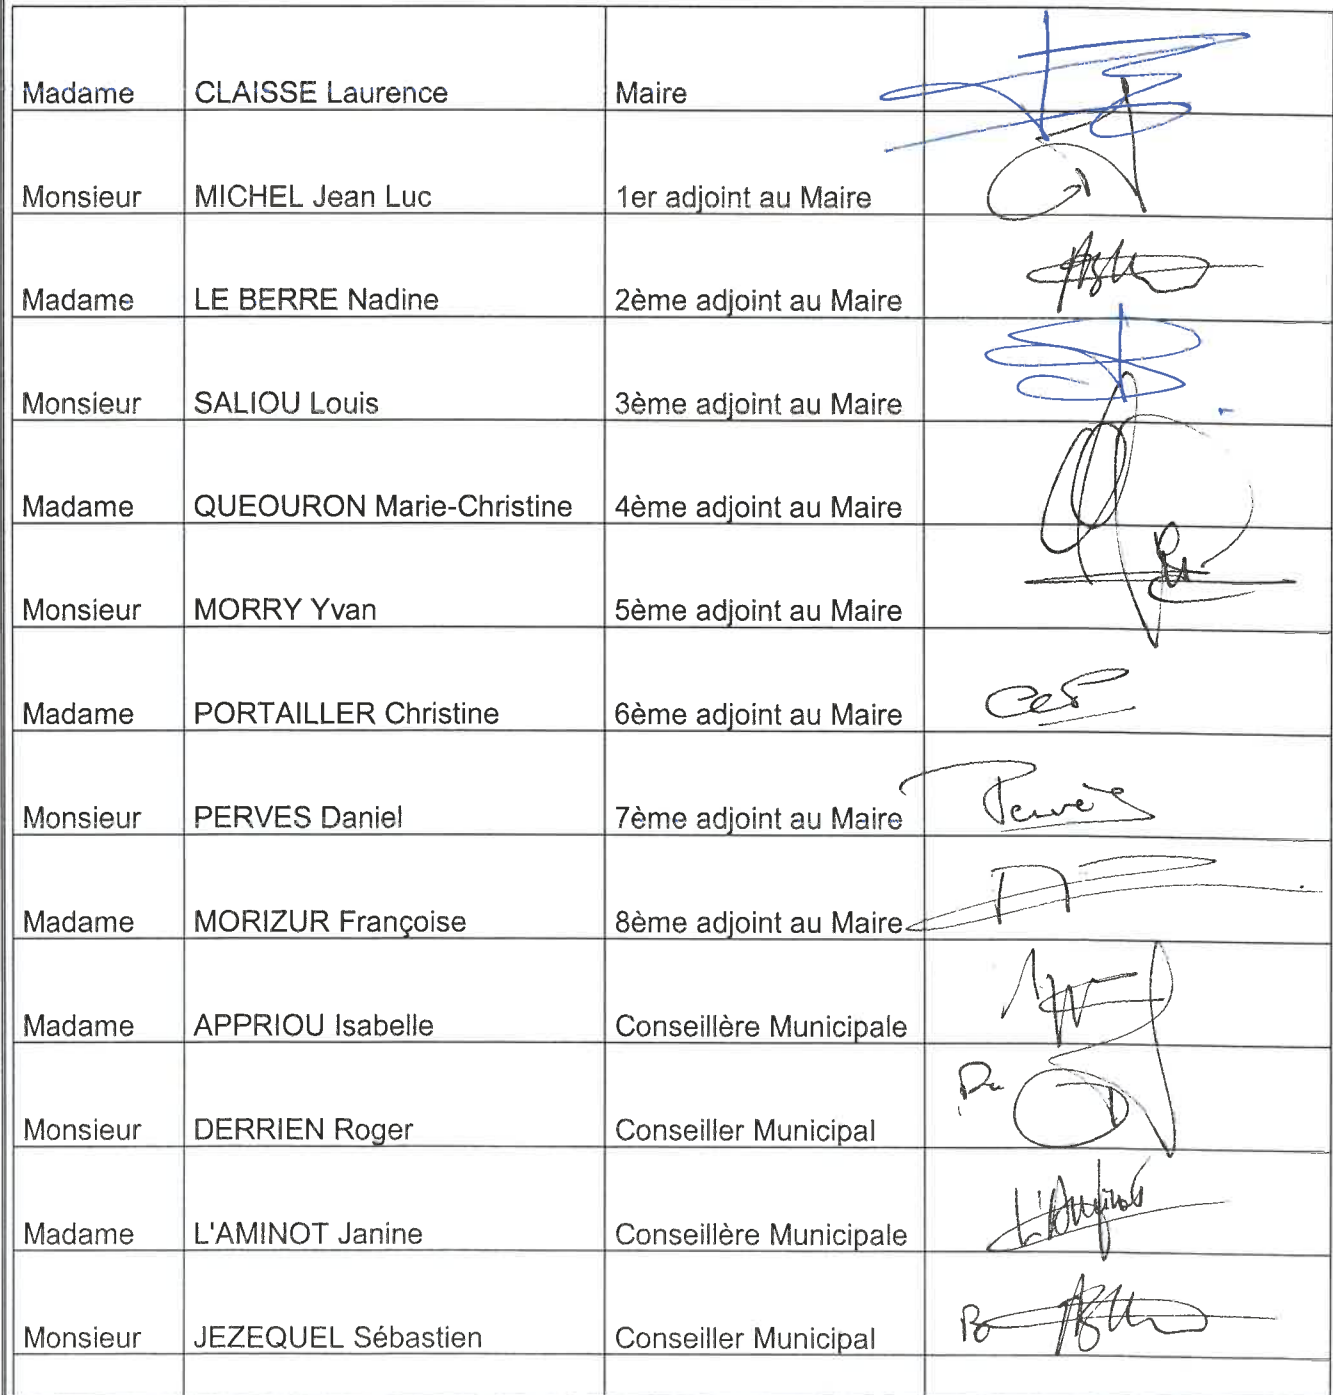 Madame CLAISSE Laurence Maire
Monsieur MICHEL Jean Luc 1er adjoint au Maire
Madame LE BERRE Nadine 2ème adjoint au Maire
Monsieur SALIOU Louis 3ème adjoint au Maire
Madame QUEOURON Marie-Christine 4ème adjoint au Maire
Monsieur MORRY Yvan 5ème adjoint au Maire
Madame PORTAILLER Christine 6ème adjoint au Maire
Monsieur PERVES Daniel 7ème adjoint au Maire Perves
Madame MORIZUR Françoise 8ème adjoint au Maire
Madame APPRIOU Isabelle Conseillère Municipale
Monsieur DERRIEN Roger Conseiller Municipal
Madame L'AMINOT Janine Conseillère Municipale L'Aminot
Monsieur JEZEQUEL Sébastien Conseiller Municipal